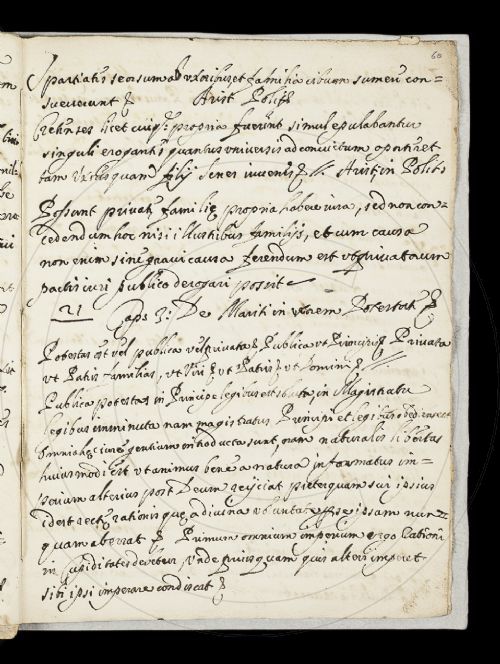 60
Spartiatis seorsum ab uxoribus et familia cibum sumere con=
sueverunt Arist Polit
Cretenses licet cuiq propria fuerunt simul epulabantur
singuli erogant quantus universis ad convictum oporturet
tam Uxores quam filij senes iuvenes Arist in Polit
Possunt privatę familię propria habere iura, sed non con=
cedendum hoc nisi illustribus familijs, et cum causa
non enim sine gravi causa ferendum est ut privatorum
pactis iuri publico derogari possit
21
Cap 3: De Mariti in uxorem Potestate
Potestas est vel publica vel privata Publica ut Principis Privata
ut Patris familias, ut Viri ut Patris ut Domini
Publica potestas in Principe legibus est soluta, in Magistratu
legibus imminuta nam magistratus Principi et legibus
Omnia hęc iure gentium introducta sunt, nam naturalis libertas
huiusmodi est ut animus bene a natura informatus im=
perium alterius post Deum reijciat pręterquam sui ipsius
id est rectę rationis quę a divina voluntate se ipsam nun=
quam aberrat Primum omnium imperium ergo Rationi
in Cupiditates debetur, unde priusquam quis alteri imperet
sibi ipsi imperare condiscat